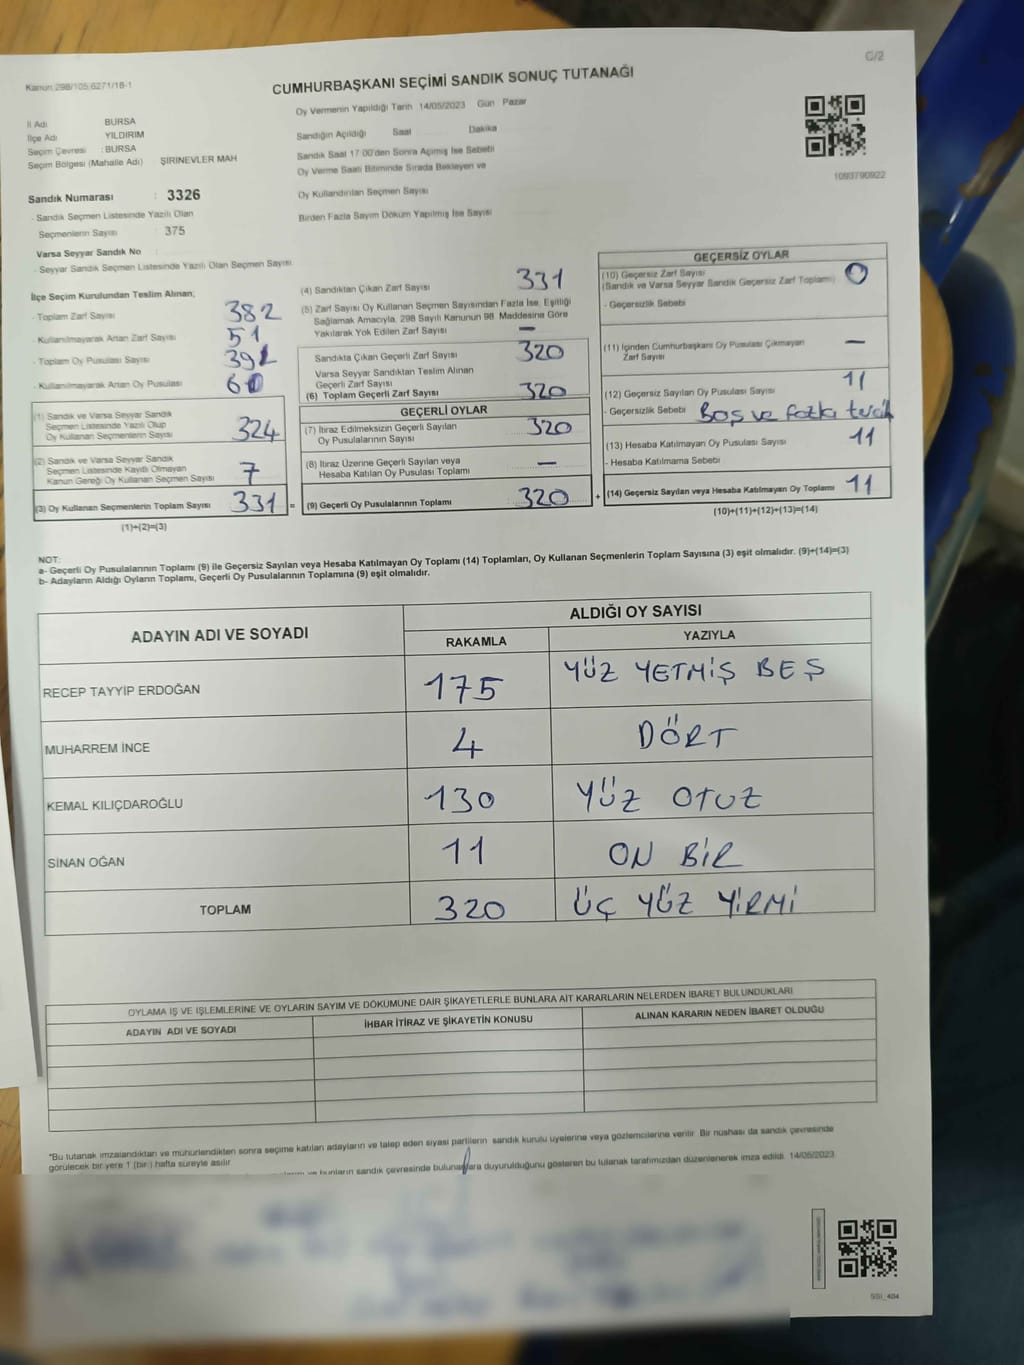 C/2
Kanun 298/105,6271/18-1
CUMHURBAŞKANI SEÇİMİ SANDIK SONUÇ TUTANAĞI
İl Adı BURSA
İlçe Adı YILDIRIM
Seçim Çevresi : BURSA
Seçim Bölgesi (Mahalle Adı) ŞİRİNEVLER MAH
Oy Vermenin Yapıldığı Tarih 14/05/2023 Gün Pazar
Sandığın Açıldığı Saat Dakika
Sandık Saat 17:00'den Sonra Açılmış İse Sebebi
Oy Verme Saati Bitiminde Sırada Bekleyen ve
Oy Kullandırılan Seçmen Sayısı
Birden Fazla Sayım Döküm Yapılmış İse Sayısı
1093790922
Sandık Numarası : 3326
- Sandık Seçmen Listesinde Yazılı Olan
Seçmenlerin Sayısı : 375
Varsa Seyyar Sandık No
- Seyyar Sandık Seçmen Listesinde Yazılı Olan Seçmen Sayısı
İlçe Seçim Kurulundan Teslim Alınan;
- Toplam Zarf Sayısı 382
- Kullanılmayarak Artan Zarf Sayısı 51
- Toplam Oy Pusulası Sayısı
- Kullanılmayarak Artan Oy Pusulası 60
(1) Sandık ve Varsa Seyyar Sandık
Seçmen Listesinde Yazılı Olup
Oy Kullanan Seçmenlerin Sayısı 324
(2) Sandık ve Varsa Seyyar Sandık
Seçmen Listesinde Kayıtlı Olmayan
Kanun Gereği Oy Kullanan Seçmen Sayısı 7
(3) Oy Kullanan Seçmenlerin Toplam Sayısı 331 =
(1)+(2)=(3)
(4) Sandıktan Çıkan Zarf Sayısı 331
(5) Zarf Sayısı Oy Kullanan Seçmen Sayısından Fazla İse, Eşitliği
Sağlamak Amacıyla, 298 Sayılı Kanunun 98. Maddesine Göre
Yakılarak Yok Edilen Zarf Sayısı —
Sandıkta Çıkan Geçerli Zarf Sayısı 320
Varsa Seyyar Sandıktan Teslim Alınan
Geçerli Zarf Sayısı
(6) Toplam Geçerli Zarf Sayısı 320
GEÇERLİ OYLAR
(7) İtiraz Edilmeksizin Geçerli Sayılan
Oy Pusulalarının Sayısı 320
(8) İtiraz Üzerine Geçerli Sayılan veya
Hesaba Katılan Oy Pusulası Toplamı —
(9) Geçerli Oy Pusulalarının Toplamı 320 +
GEÇERSİZ OYLAR
(10) Geçersiz Zarf Sayısı
(Sandık ve Varsa Seyyar Sandık Geçersiz Zarf Toplamı) 0
- Geçersizlik Sebebi
(11) İçinden Cumhurbaşkanı Oy Pusulası Çıkmayan
Zarf Sayısı —
(12) Geçersiz Sayılan Oy Pusulası Sayısı 11
- Geçersizlik Sebebi Boş ve fazla tercih
(13) Hesaba Katılmayan Oy Pusulası Sayısı 11
- Hesaba Katılmama Sebebi
(14) Geçersiz Sayılan veya Hesaba Katılmayan Oy Toplamı 11
(10)+(11)+(12)+(13)=(14)
NOT:
a- Geçerli Oy Pusulalarının Toplamı (9) ile Geçersiz Sayılan veya Hesaba Katılmayan Oy Toplamı (14) Toplamları, Oy Kullanan Seçmenlerin Toplam Sayısına (3) eşit olmalıdır. (9)+(14)=(3)
b- Adayların Aldığı Oyların Toplamı, Geçerli Oy Pusulalarının Toplamına (9) eşit olmalıdır.
ADAYIN ADI VE SOYADI
ALDIĞI OY SAYISI
RAKAMLA YAZIYLA
RECEP TAYYİP ERDOĞAN 175 YÜZ YETMİŞ BEŞ
MUHARREM İNCE 4 DÖRT
KEMAL KILIÇDAROĞLU 130 YÜZ OTUZ
SİNAN OĞAN 11 ON BİR
TOPLAM 320 ÜÇ YÜZ YİRMİ
OYLAMA İŞ VE İŞLEMLERİNE VE OYLARIN SAYIM VE DÖKÜMÜNE DAİR ŞİKAYETLERLE BUNLARA AİT KARARLARIN NELERDEN İBARET BULUNDUKLARI
ADAYIN ADI VE SOYADI İHBAR İTİRAZ VE ŞİKAYETİN KONUSU ALINAN KARARIN NEDEN İBARET OLDUĞU
*Bu tutanak imzalandıktan ve mühürlendikten sonra seçime katılan adayların ve talep eden siyasi partilerin sandık kurulu üyelerine veya gözlemcilerine verilir. Bir nüshası da sandık çevresinde
görülecek bir yere 1 (bir) hafta süreyle asılır.
ve bunların sandık çevresinde bulunanlara duyurulduğunu gösteren bu tutanak tarafımızdan düzenlenerek imza edildi. 14/05/2023
SSI_404